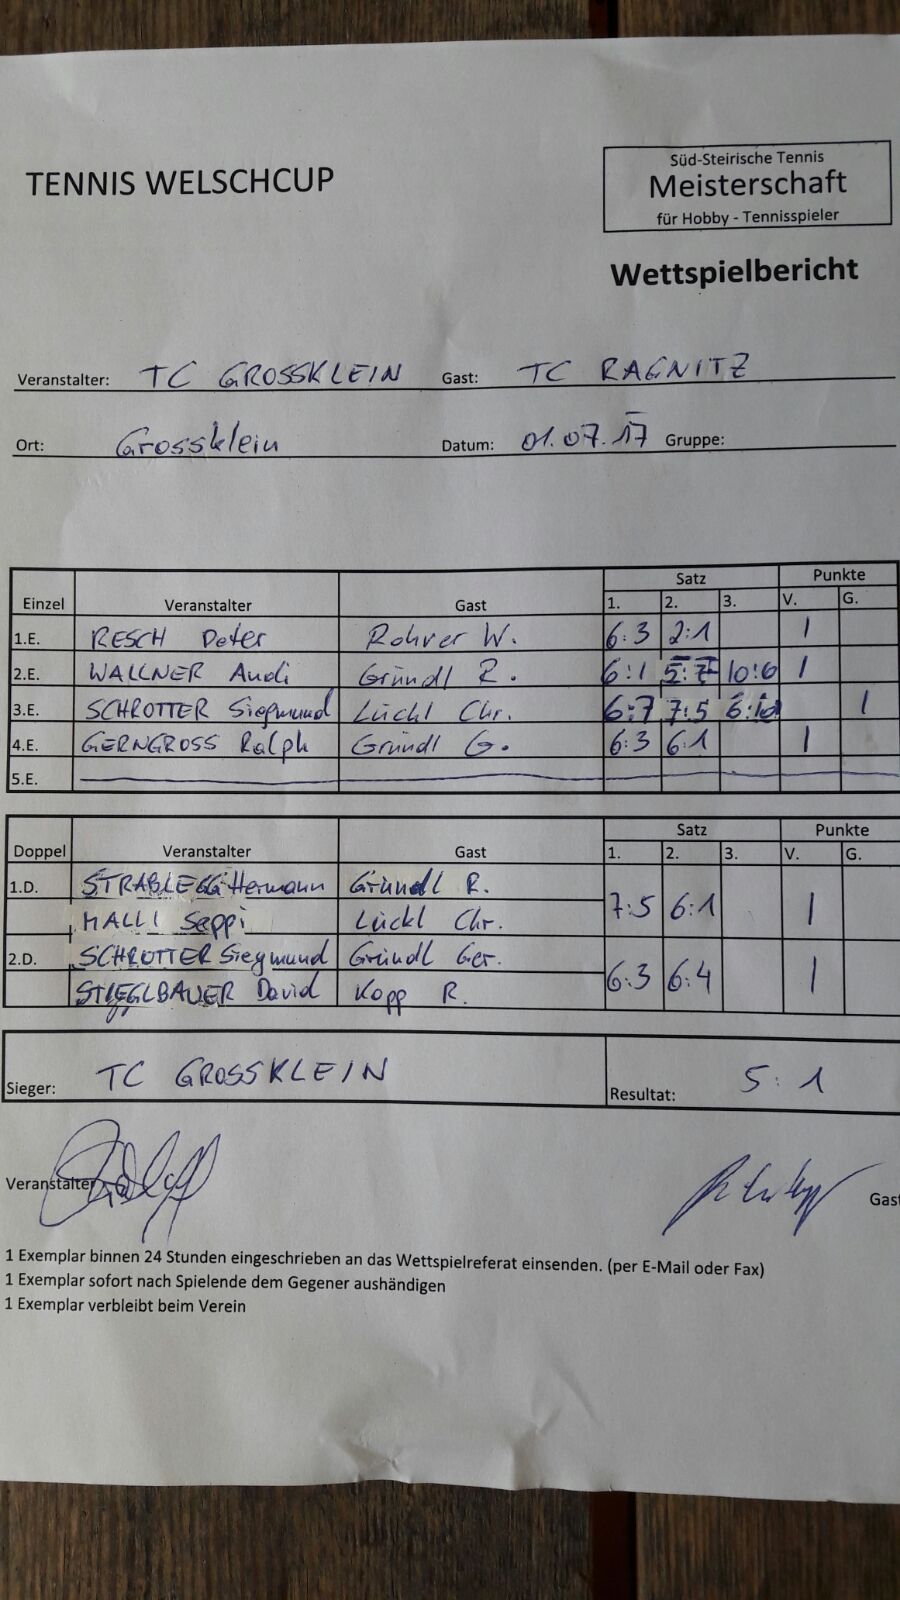 TENNIS WELSCHCUP
Süd-Steirische Tennis
Meisterschaft
für Hobby - Tennisspieler
Wettspielbericht
Veranstalter: TC GROSSKLEIN Gast: TC RAGNITZ
Ort: Grossklein Datum: 01.07.17 Gruppe:
Satz Punkte
Einzel Veranstalter Gast 1. 2. 3. V. G.
1.E. RESCH Peter Rohrer W. 6:3 2:1 1
2.E. WALLNER Andi Gründl R. 6:1 5:7 10:6 1
3.E. SCHROTTER Siegmund Lückl Chr. 6:7 7:5 6:10 1
4.E. GERNGROSS Ralph Gründl G. 6:3 6:1 1
5.E.
Satz Punkte
Doppel Veranstalter Gast 1. 2. 3. V. G.
1.D. STRABLEGG Hermann Gründl R. 7:5 6:1 1
MALLI Seppi Lückl Chr.
2.D. SCHROTTER Siegmund Gründl Ger. 6:3 6:4 1
STIEGLBAUER David Kopp R.
Sieger: TC GROSSKLEIN Resultat: 5:1
Veranstalter Gast
1 Exemplar binnen 24 Stunden eingeschrieben an das Wettspielreferat einsenden. (per E-Mail oder Fax)
1 Exemplar sofort nach Spielende dem Gegener aushändigen
1 Exemplar verbleibt beim Verein